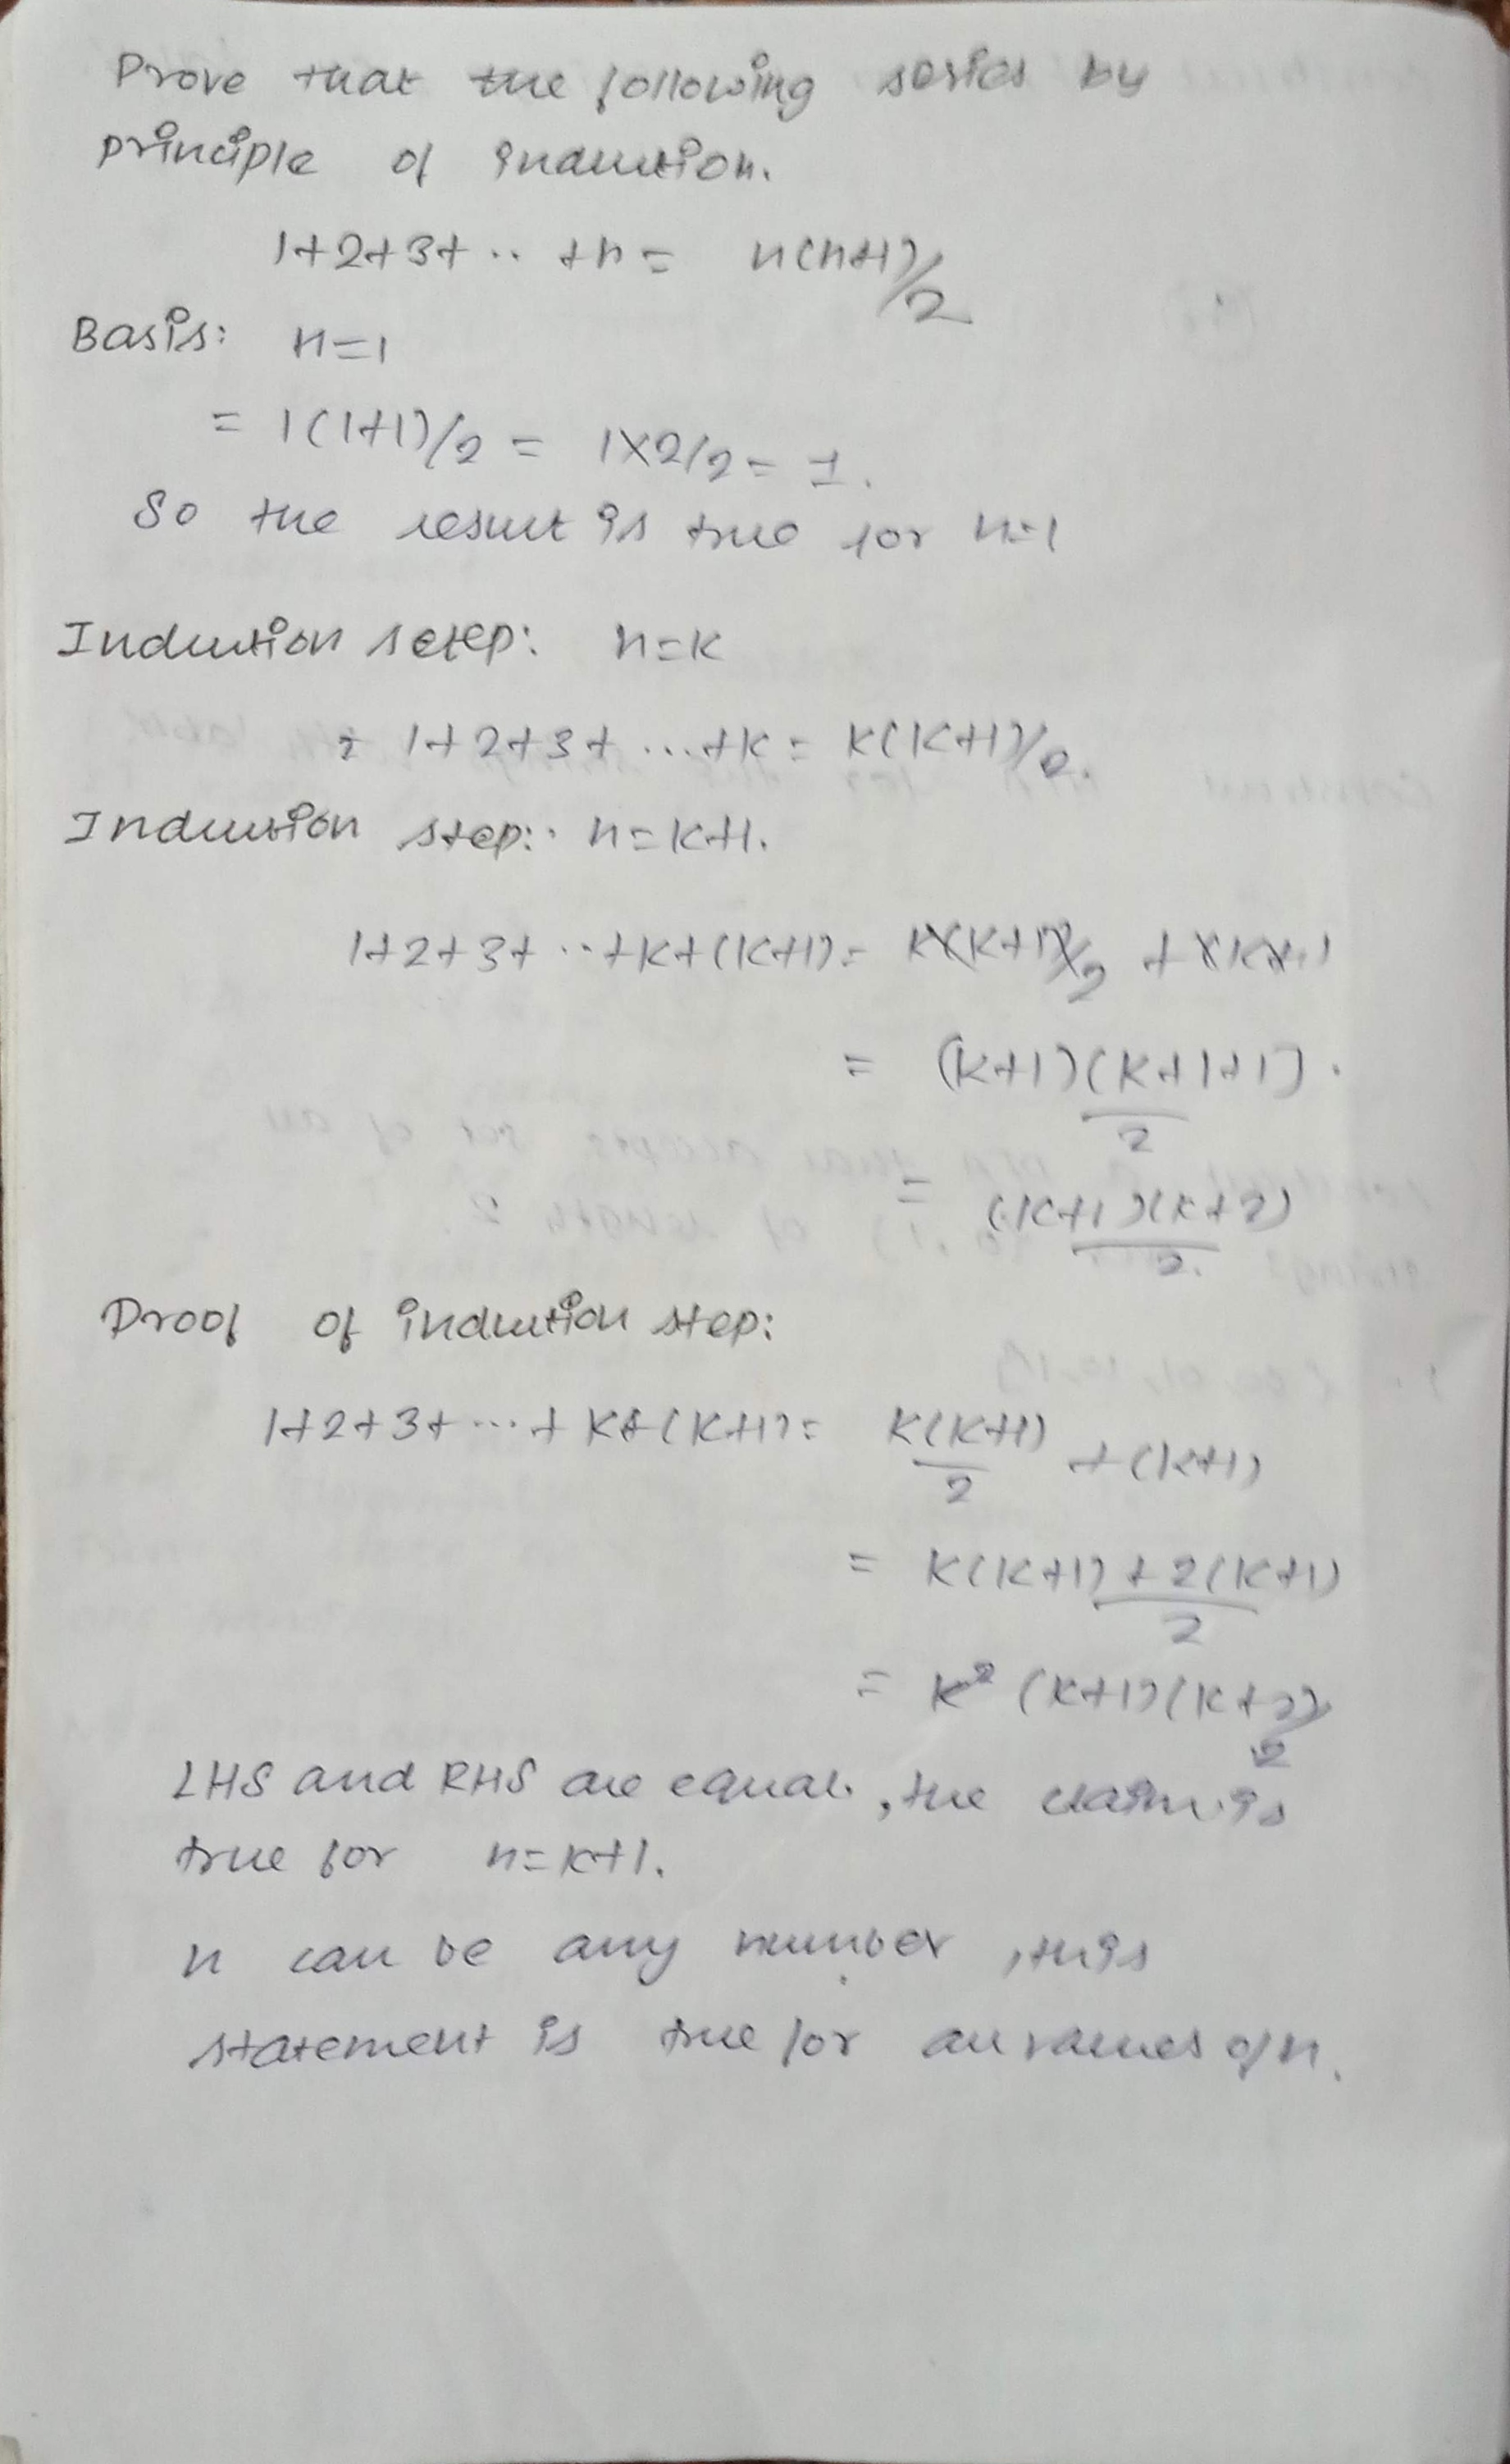 Prove that the following series by
principle of induction.
1+2+3+ .. +n = n(n+1)/2
Basis: n=1
= 1(1+1)/2 = 1×2/2 = 1.
So the result is true for n=1
Induction setep: n=k
1+2+3+ ...+k = k(k+1)/2.
Induction step: n=k+1.
1+2+3+ ..+k+(k+1) =
= (k+1)(k+1+1)
2
= (k+1)(k+2)
2.
Proof of induction step:
1+2+3+ ... + k+(k+1) = k(k+1)/2 + (k+1)
= k(k+1) + 2(k+1)
2
= k² (k+1)(k+2)
2
LHS and RHS are equal, the claim is
true for n=k+1.
n can be any number, this
statement is true for all values of n.